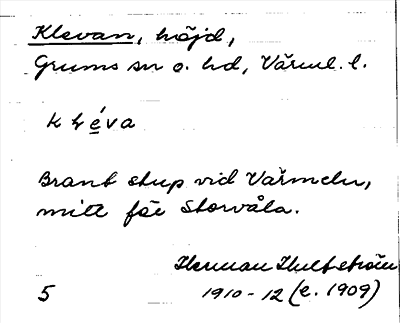 Klevan, höjd,
Grums sn o. hd, Värml. l.
k l é v a
Brant stup vid Värmeln,
mitt för Storvåla.
Herman Hultström
5 1910-12 (e. 1909)